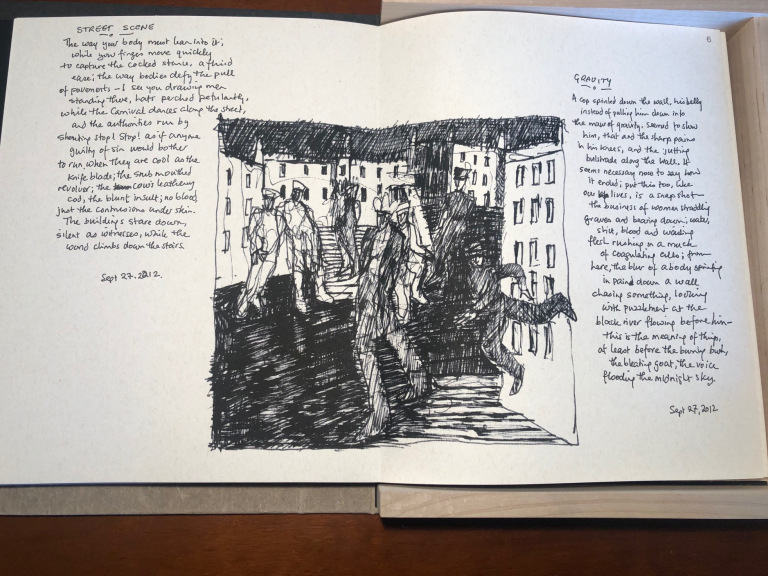 STREET SCENE
The way your body must lean into it;
while your fingers move quickly
to capture the cocked stance, a fluid
ease; the way bodies defy the pull
of pavements – I see you drawing men
standing there, hats perched petulantly,
while the Carnival dances along the street,
and the authorities run by
shouting stop! Stop! as if anyone
guilty of sin would bother
to run, when they are cool as the
knife blade; the snub mouthed
revolver; the cow's leathery
cod, the blunt insult; no blood,
just the contusions under skin.
The buildings stare down,
silent as witnesses, while the
wind climbs down the stairs.
Sept 27. 2012.
6
GRAVITY
A cop sprinted down the wall, his belly
instead of pulling him down into
the maw of gravity, seemed to slow
him, that and the sharp pains
in his knees, and the jutting
balustrade along the wall. It
seems necessary now to say how
it ended; but this too, like
our lives, is a snapshot –
the business of women straddling
graves and bearing down, water,
shit, blood and wailing
flesh rushing in a muck
of coagulating cells; from
here, the blur of a body sprinting
in pain down a wall
chasing something, looking
with puzzlement at the
black river flowing before him –
this is the meaning of things,
at least before the burning bush,
the bleating goat, the voice
flooding the midnight sky.
Sept 27, 2012